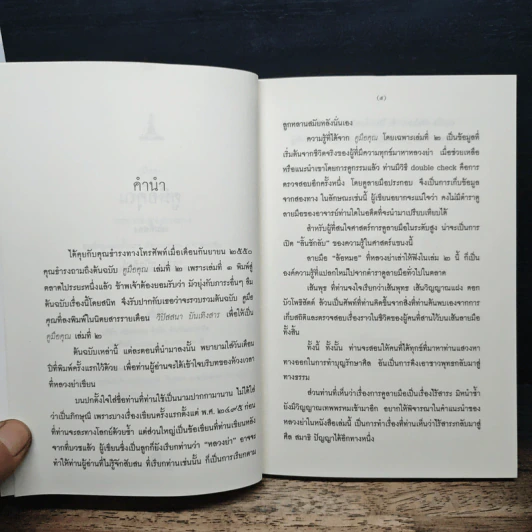 คำนำ
ได้คุยกับคุณธำรงทางโทรศัพท์เมื่อเดือนกันยายน ๒๕๕๐
คุณธำรงถามถึงต้นฉบับ คู่มือคุณ เล่มที่ ๒ เพราะเล่มที่ ๑ พิมพ์สู่
ตลาดไประยะหนึ่งแล้ว ข้าพเจ้าต้องยอมรับว่า มัวยุ่งกับภาระอื่นๆ ลืม
ต้นฉบับเรื่องนี้โดยสนิท จึงรับปากกับเธอว่าจะรวบรวมต้นฉบับ คู่มือ
คุณที่ลงพิมพ์ในนิตยสารรายเดือน วิปัสสนา บันเทิงสาร เพื่อให้เป็น
คู่มือคุณ เล่มที่ ๒
ต้นฉบับเหล่านี้ แต่ละตอนที่นำมาลงนั้น พยายามใส่วันเดือน
ปีที่พิมพ์ครั้งแรกไว้ด้วย เพื่อท่านผู้อ่านจะได้เข้าใจบริบทของห้วงเวลา
ที่หลวงย่าเขียน
บนปกตั้งใจใส่ชื่อท่านที่ท่านใช้เป็นนามปากกามานาน ไม่ได้ใส่
ว่าเป็นภิกษุณี เพราะบางเรื่องเขียนครั้งแรกตั้งแต่ พ.ศ. ๒๔๙๕ ก่อน
ที่ท่านจะละทางโลกย์ด้วยซ้ำ แต่ส่วนใหญ่เป็นข้อเขียนที่ท่านเขียนหลัง
จากที่บวชแล้ว ผู้เขียนซึ่งเป็นลูกก็ยังเรียกท่านว่า "หลวงย่า" อาจจะ
ทำให้ท่านผู้อ่านที่ไม่รู้จักสับสน ที่เรียกท่านเช่นนั้น ก็เป็นการเรียกตาม
ลูกหลานสมัยหลังนั่นเอง
ความรู้ที่ได้จาก คู่มือคุณ โดยเฉพาะเล่มที่ ๒ เป็นข้อมูลที่
เริ่มต้นจากชีวิตจริงของผู้ที่มีความทุกข์มาหาหลวงย่า เมื่อช่วยเหลือ
หรือแนะนำเขาโดยการดูกรรมแล้ว ท่านมีวิธี double check คือการ
ตรวจสอบอีกครั้งหนึ่ง โดยดูลายมือประกอบ จึงเป็นการเก็บข้อมูล
จากสองทาง ในลักษณะเช่นนี้ ผู้เขียนอยากจะแน่ใจว่า คงไม่มีตำราดู
ลายมือของอาจารย์ท่านใดในอดีตที่จะนำมาเปรียบเทียบได้
สำหรับผู้ที่สนใจศาสตร์การดูลายมือในระดับสูง น่าจะเป็นการ
เปิด "ลิ้นชักลับ" ของความรู้ในศาสตร์แขนงนี้
ลายมือ ที่หลวงย่าเล่าให้ฟังในเล่ม ๒ นี้ ก็เป็น
องค์ความรู้ที่แปลกใหม่ไปจากตำราดูลายมือทั่วไปในตลาด
เส้นพุธ ที่ท่านจงใจเรียกว่าเส้นพุทธ เส้นวิญญาณแฝง ดอก
บัวโพธิสัตต์ ล้วนเป็นศัพท์ที่ท่านคิดขึ้นจากสิ่งที่ท่านค้นพบเองจากการ
เก็บสถิติและตรวจสอบเรื่องราวในชีวิตของผู้คนที่สานไว้บนเส้นลายมือ
ทั้งสิ้น
ทั้งนี้ ทั้งนั้น ท่านจะสอนให้คนที่ได้ทุกข์ที่มาหาท่านแสวงหา
ทางออกในการทำบุญรักษาศีล อันเป็นการดึงเอาชาวพุทธกลับมาสู่
ทางธรรม
ส่วนท่านที่เห็นว่าเรื่องการดูลายมือเป็นเรื่องไร้สาระ มิหนำซ้ำ
ยังมีวิญญาณเทพพรหมเข้ามาอีก อยากให้พิจารณาในคำแนะนำของ
หลวงย่าในหนังสือเล่มนี้ เป็นการทำเรื่องที่ท่านเห็นว่าไร้สาระกลับมาสู่
ศีล สมาธิ ปัญญาได้อีกทางหนึ่ง